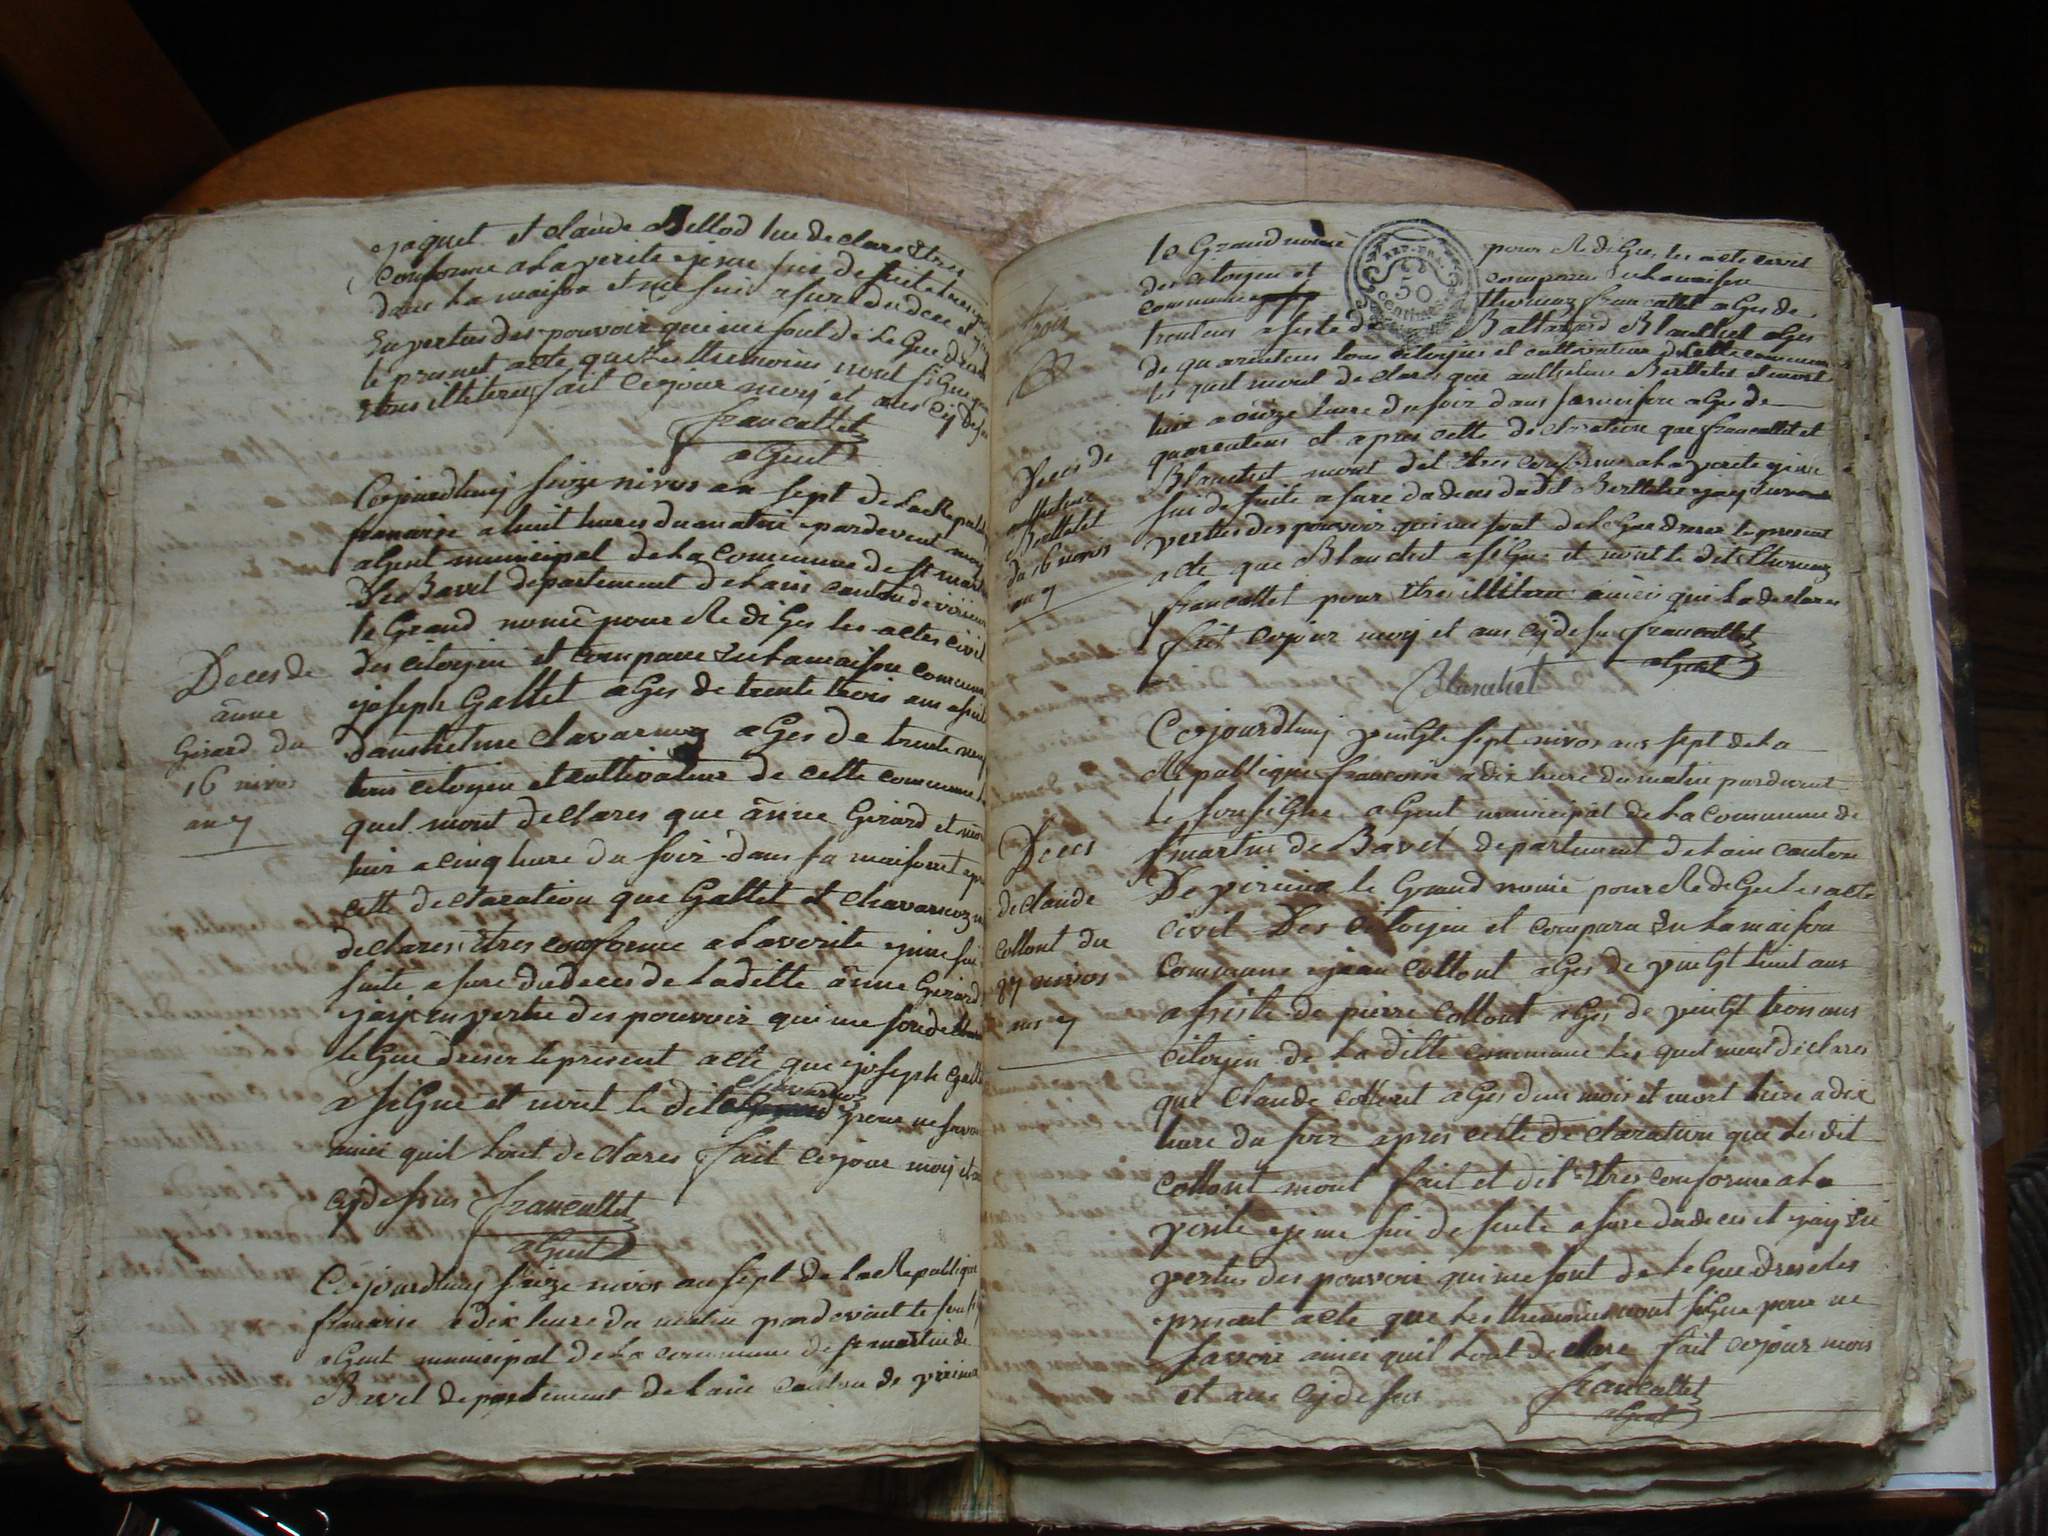 jaquet et claude Bellod lue declare Etre
conforme a la verite ejeme suis de suite
dans la maison et me suis asure du dece et
En vertus des pouvoir qui me sont de legue dresse
le presnet acte que les themoins nont signe
Etres illiteres fait cejour moy et ans cy de
francallet
agent
Cejourdhuy seize nivos an sept de la Republi
francaise a huit heures du matin pardevent moy
agent municipal de la commune de st marti
De Bavel departement de lain canton de virieu
le Grand nomé pour Rediges les actes civil
des citoyen et comparu En la maison commune
joseph Gallet ages de trente trois ans asiste
danthelme Chavarnoz ages de trente neuf
tous citoyen et cultivateur de cette commune le
quel mont declares que ânne Girard et mor
hier a cinq heure du soir dans sa maison et apre
cette declaration que Gallet et Chavarnoz m
declares êtres conforme a la verite ejeme sui
suite asure du deces de ladille ânne Girard
ejaij En vertu des pouvoir qui me son de
legue dreser le presént acte que joseph Gall
a signe et nont le dit chavarnoz pour ne savoi
ainci quil lont declares fait cejour moij et an
cydesus francallet
agent
Deces de
ânne
Girard du
16 nivos
an 7
Cejourdhuy seize nivos an sept de la Republique
francaise a dix heure du matin pardevant le sousig
agent municipal de la commune de st martin de
Bavel departement de lain canton de virieux
le Grand nomé pour Rediges les acte civil
des citoyen et comparu En la maison
commune thomaz francallet ages de
REP. FRA.
50
CENTIMES
trois
trenteus asiste de Baltazard Blanchet ages
de quarenteus tous citoyens et cultivateur de cette commune
les quel mont declares que anthelme Berthelet et mort
hier a ônze heure du soir dans sa maison ages de
quarenteus et apres cette declaration que francallet et
Blanchet mont dit êtres conforme a la verite ejeme
sui de suite asure du deces dudit Berthelet ejay En
vertus des pouvoir qui me sont delegue dreser le present
acte que Blanchet a signe et nont le dit thomaz
francallet pour Etres illitere ainci que la declares
fait cejour moij et ans cydesu francallet
agent
Blanchet
Deces de
anthelme
Berthelet
du 16 nivos
an 7
Cejourdhuij vingt sept nivos ans sept de la
Republique francoise a dix heure du matin pardevent
le sousigne agent municipal de la commune de
st martin de Bavel departement de lain canton
De virieux le Grand nomé pour Rediges les acte
civil Des citoyen et comparu En la maison
commune ejean Collont ages de vingt huit ans
asiste de pierre Collont ages de vingt trois ans
citoyen de la ditte commune les quel mont declares
que Claude Collont ages dun mois et mort hiere a dix
heure du soir apres cette declaration que les dit
Collont mont fait et dit Etres conforme a la
verite ejeme sui de suite asure du deces et ejay En
vertus des pouvoir qui me sont de legue dreseles
present acte que les themoins nont signe pour ne
savoir ainci quil lont declare fait cejour mois
et ans cy desus francallet
agent
Deces
de claude
Collont du
27 nivos
ans 7